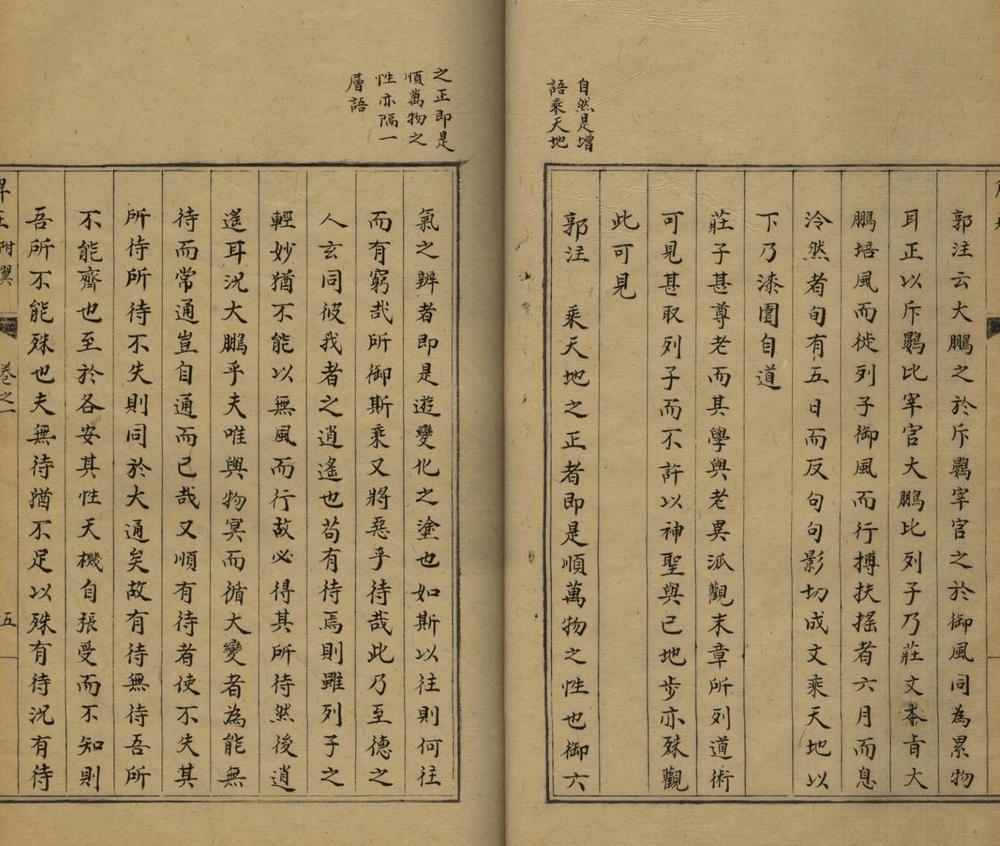 自然是增
語乘天地
郭注云大鵬之於斥鷃宰官之於御風同為累物
耳正以斥鷃比宰官大鵬比列子乃莊文本旨大
鵬培風而徙列子御風而行摶扶搖者六月而息
泠然者旬有五日而反句句影切成文乘天地以
下乃漆園自道
莊子甚尊老而其學與老異派觀末章所列道術
可見甚取列子而不許以神聖與已地步亦殊觀
此可見
郭注 乘天地之正者即是順萬物之性也御六
之正即是
順萬物之
性亦隔一
層語
氣之辨者即是遊變化之塗也如斯以往則何往
而有窮哉所御斯乘又將惡乎待哉此乃至德之
人玄同彼我者之逍遙也苟有待焉則雖列子之
輕妙猶不能以無風而行故必得其所待然後逍
遙耳況大鵬乎夫唯與物冥而循大變者為能無
待而常通豈自通而已哉又順有待者使不失其
所待所待不失則同於大通矣故有待無待吾所
不能齊也至於各安其性天機自張受而不知則
吾所不能殊也夫無待猶不足以殊有待況有待
附翼 卷之一 五